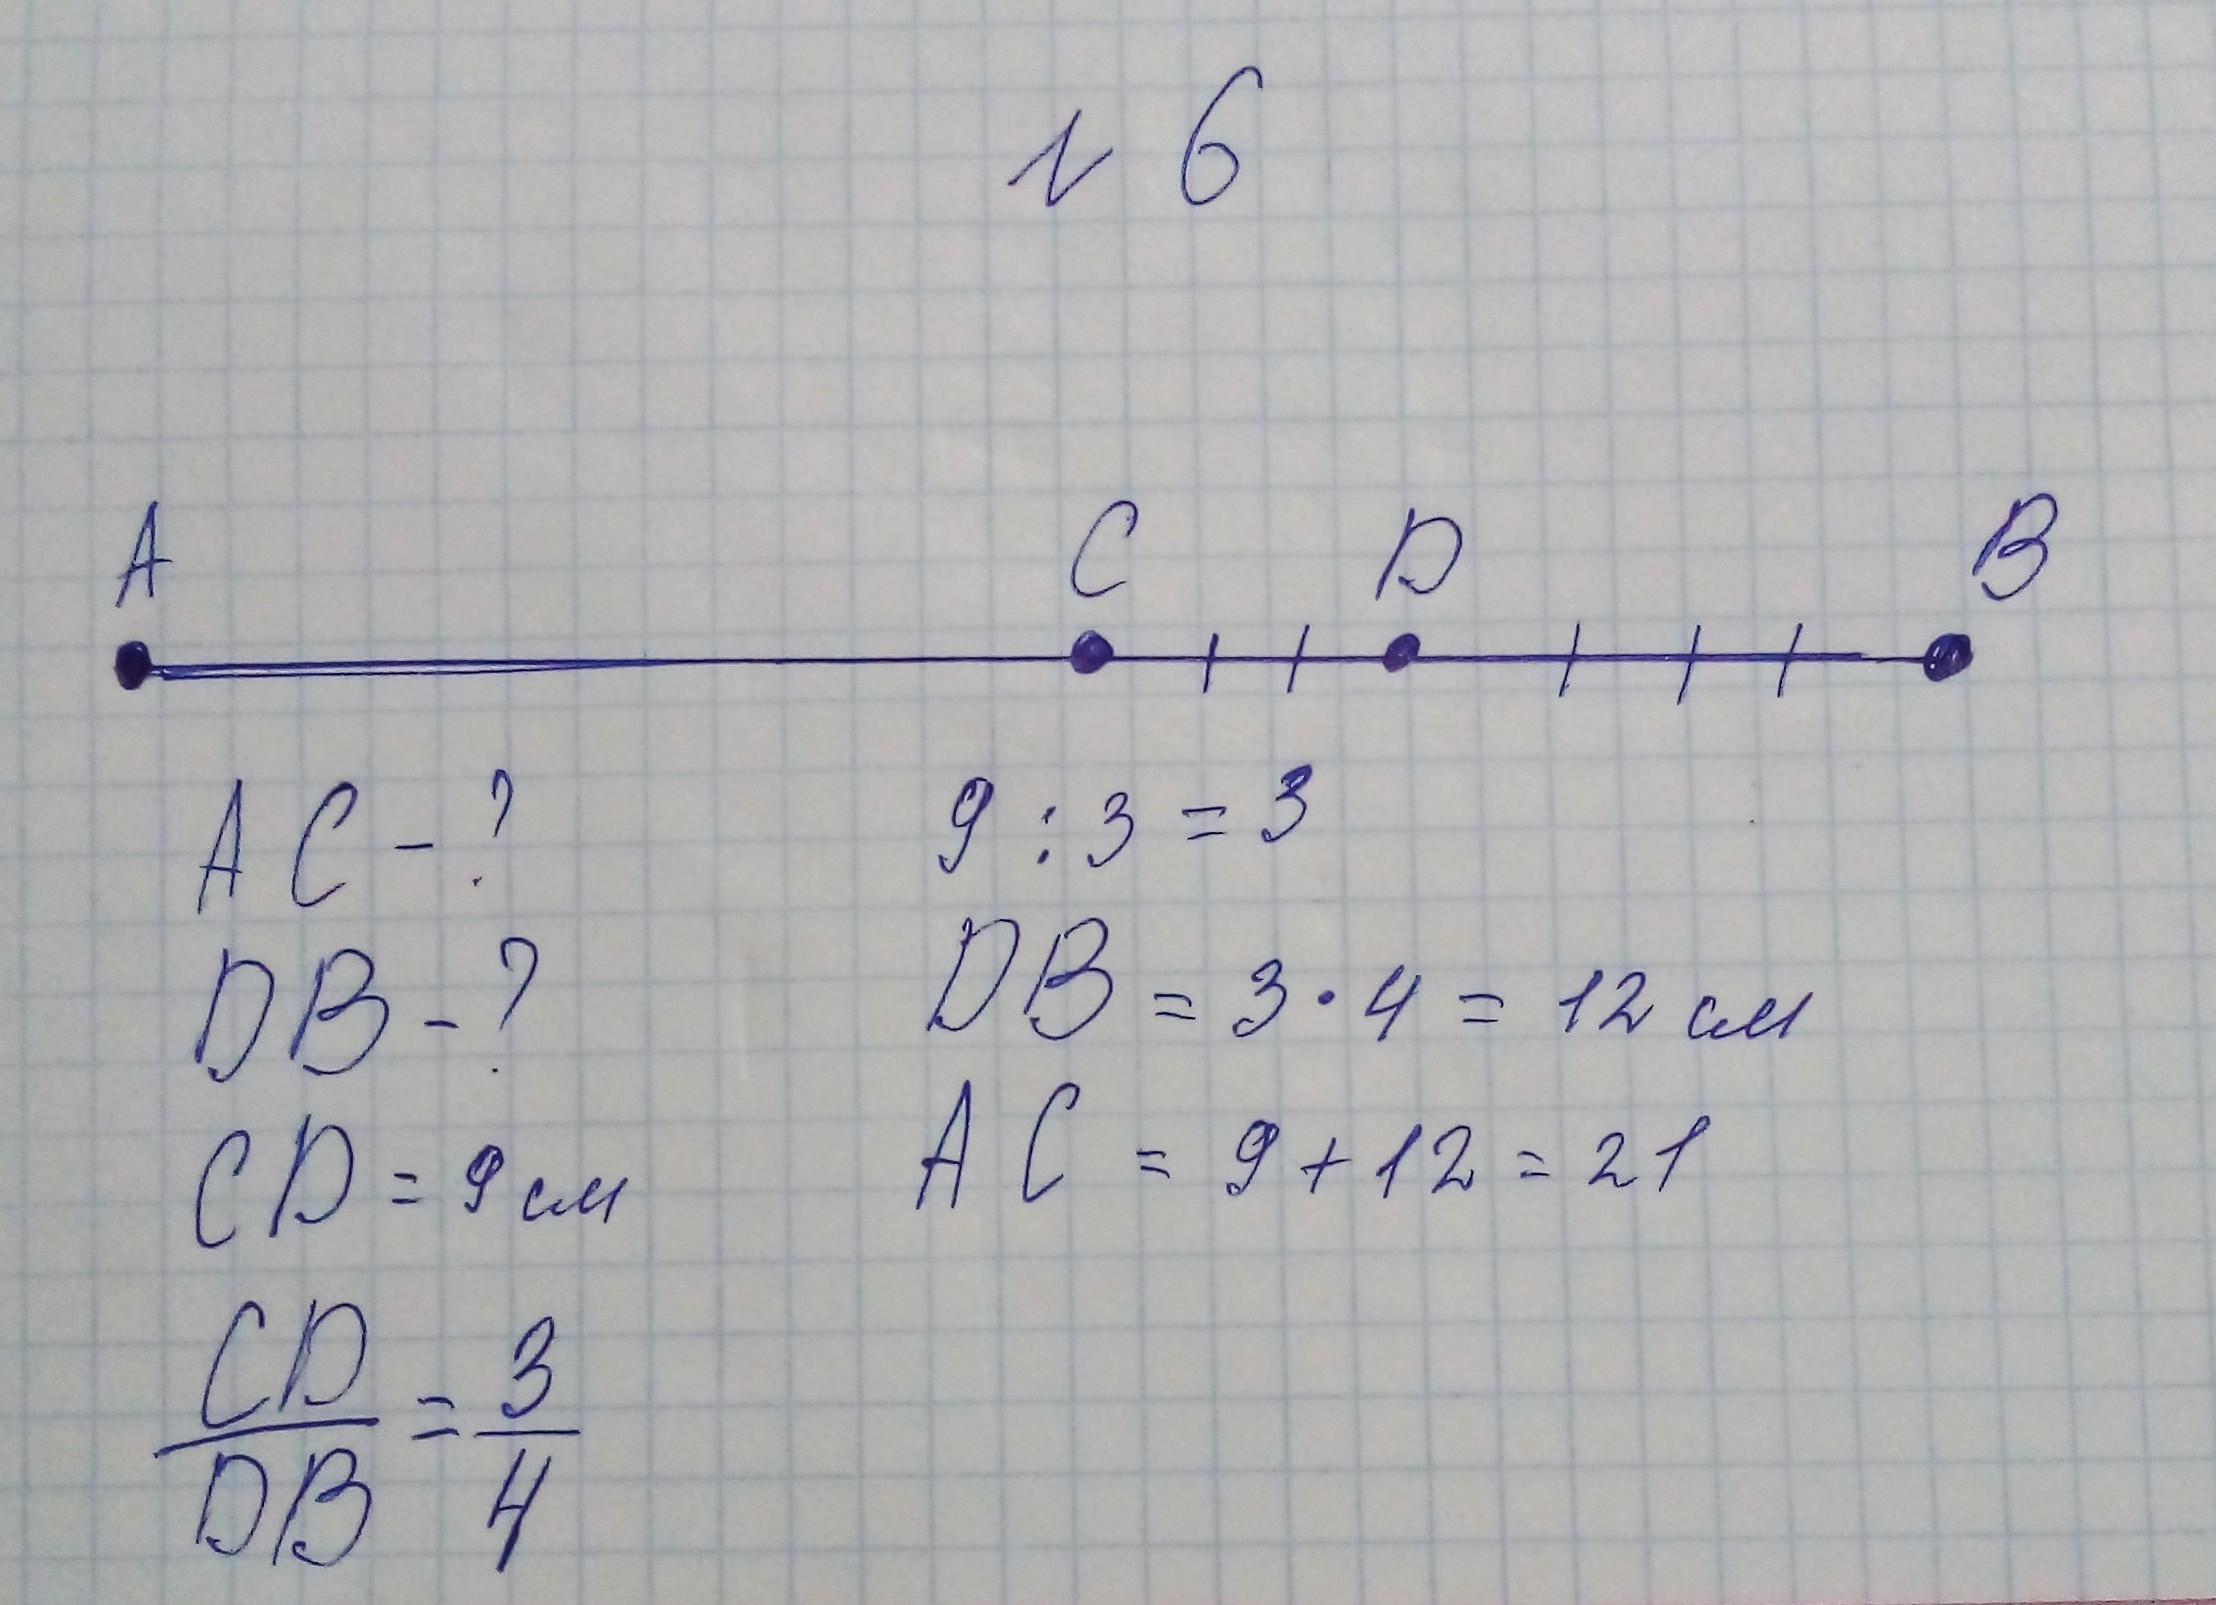 № 6
A C D B
AC - ?
DB - ?
CD = 9 см
CD/DB = 3/4
9 : 3 = 3
DB = 3 · 4 = 12 см
AC = 9 + 12 = 21